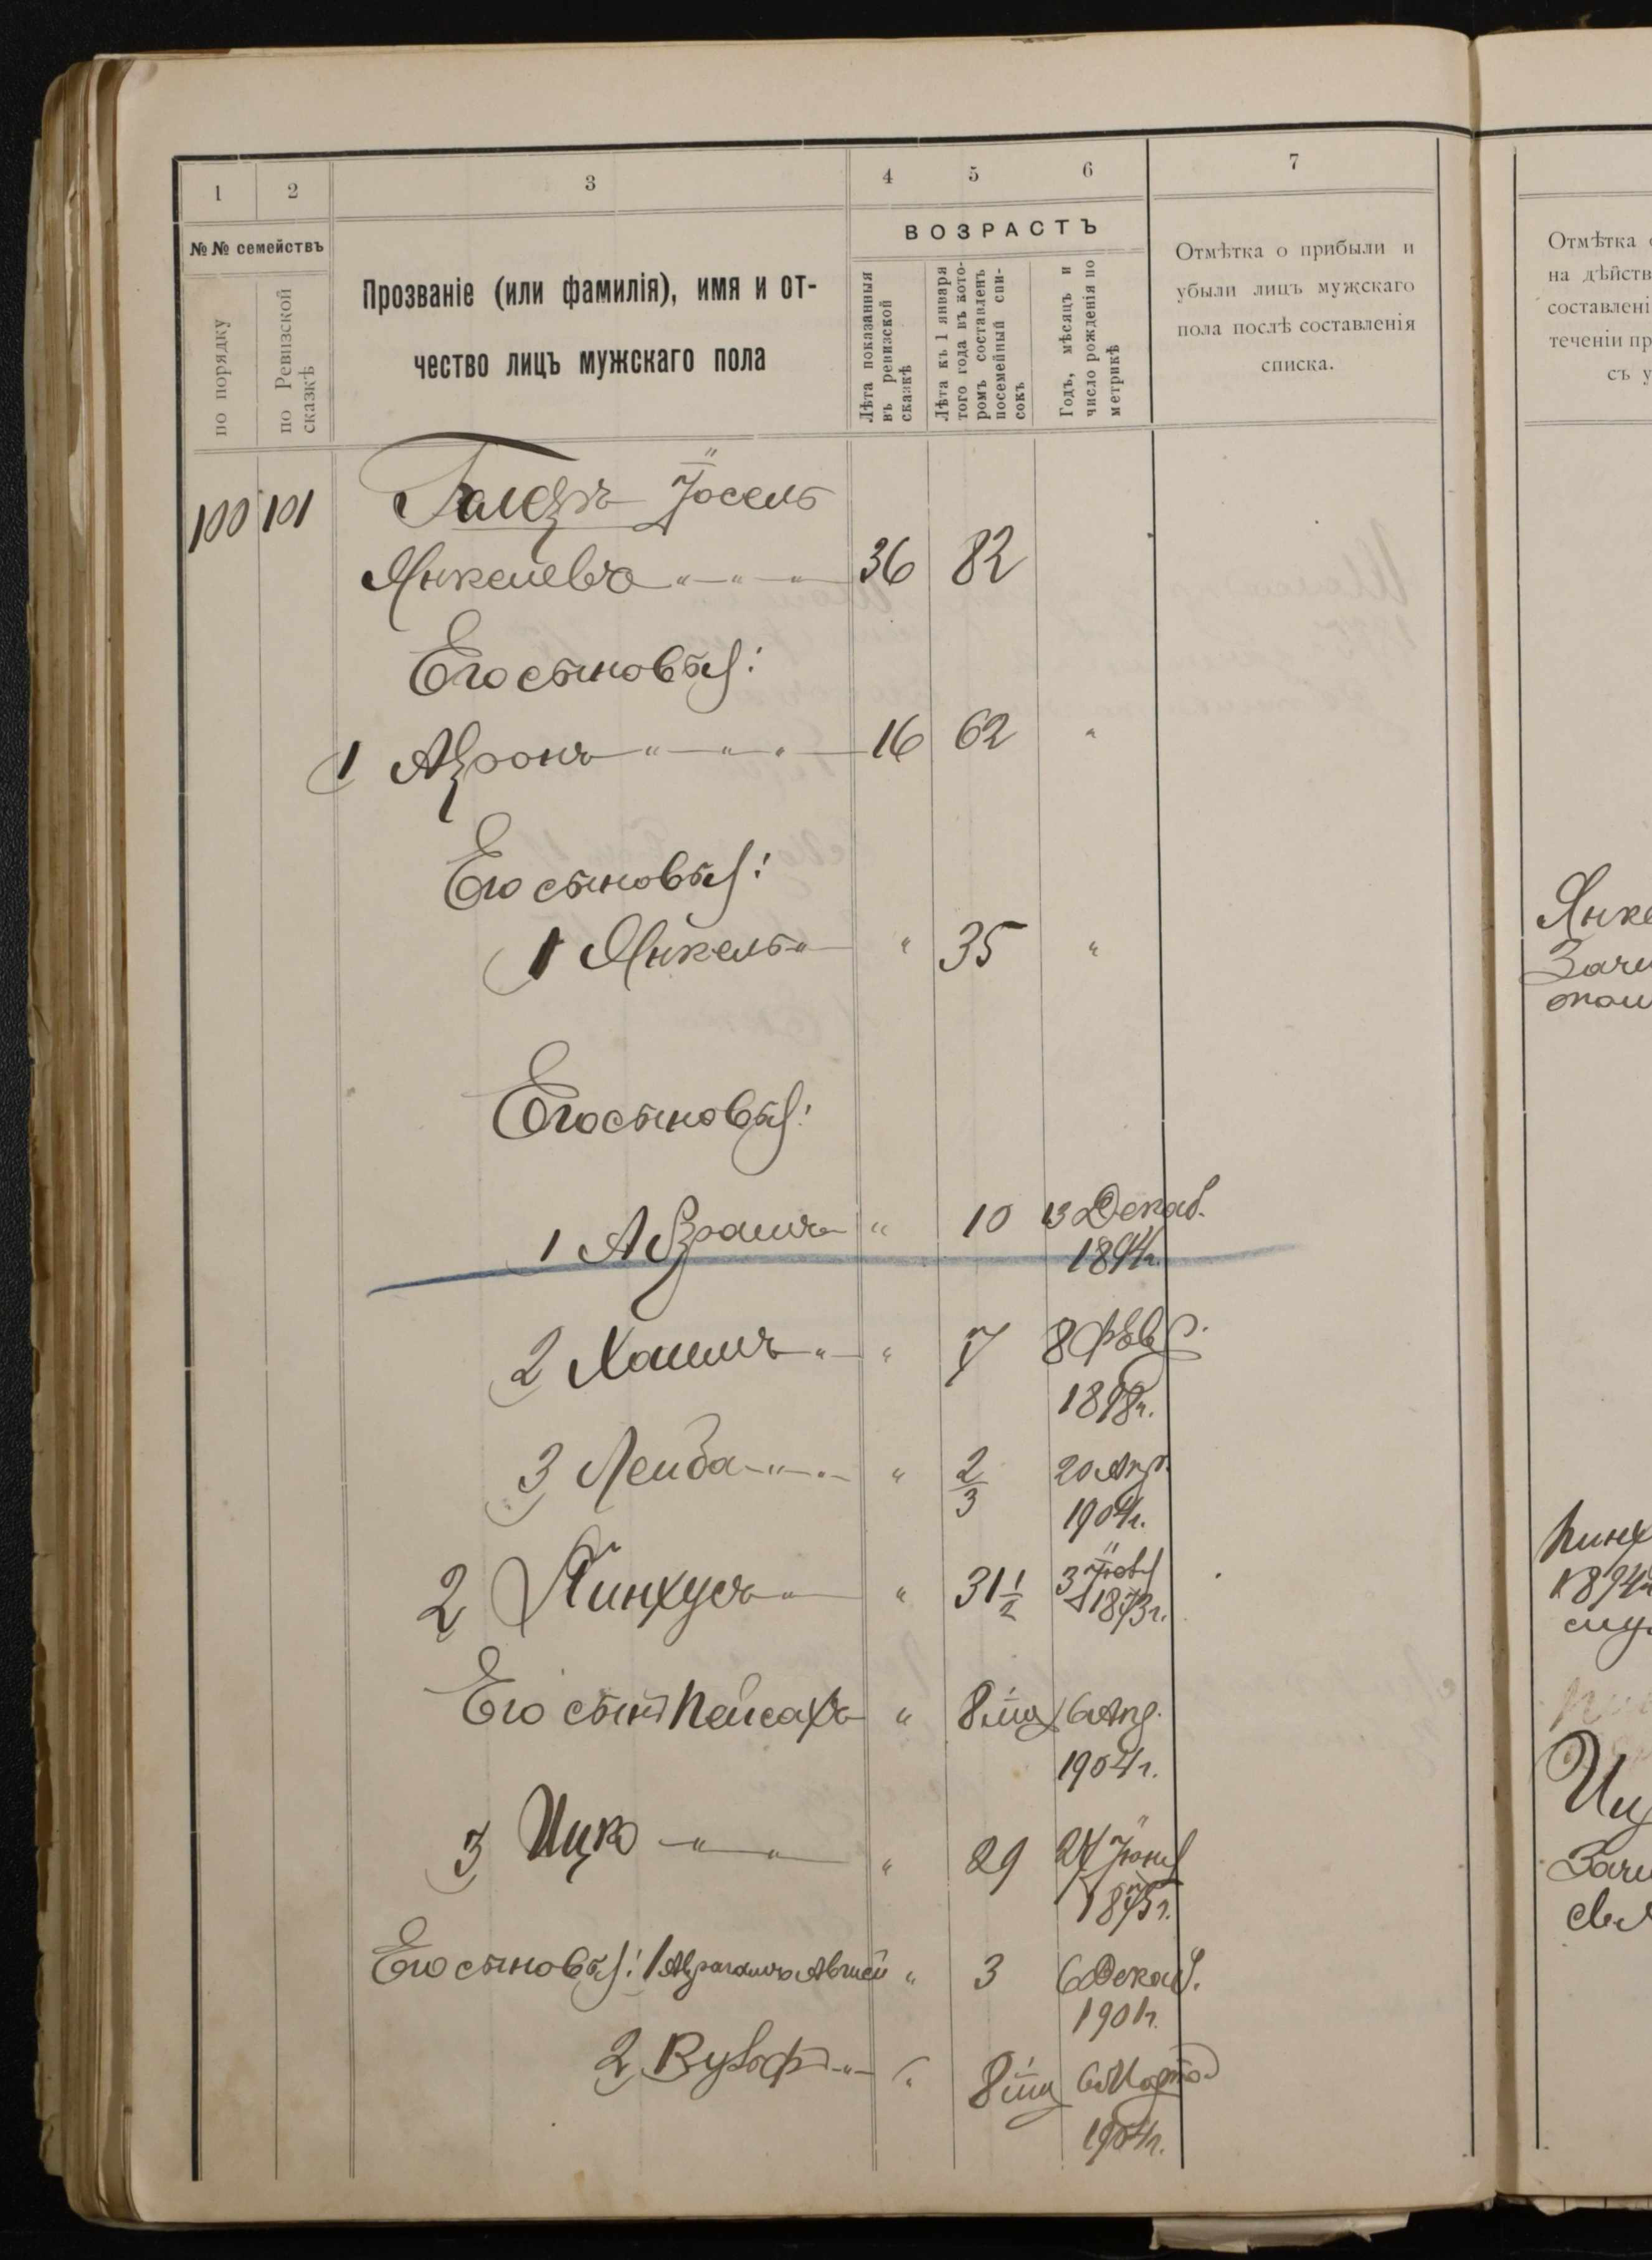 1
2
3
4
5
6
7
№№ семействъ
по порядку
по Ревизской сказкѣ
Прозваніе (или фамилія), имя и от-
чество лицъ мужскаго пола
ВОЗРАСТЪ
Лѣта показанныя
въ ревизской
сказкѣ
Лѣта къ 1 января
того года въ кото-
ромъ составленъ
посемейный спи-
сокъ
Годъ, мѣсяцъ и
число рожденія по
метрикѣ
Отмѣтка о прибыли и
убыли лицъ мужскаго
пола послѣ составленія
списка.
Отмѣтка
на дѣйств
составлені
теченіи пр
съ у
100 101 Іосель
Янкелевъ 36 82
Его сыновья:
1 Аронъ 16 62 "
Его сыновья:
1 Янкель " 35 "
Его сыновья:
1 Абрамъ " 10 13 Декаб.
1894г.
2 Хаимъ " 7 8 Февр.
1898г.
3 Лейба " 2/3 20 Апр.
1904г.
2 Пинхусъ " 31 1/2 3
1873г.
Его сынъ Пейсахъ " 8 мц 6 Апр.
1904г.
3 Ицко " 29 27 Іюня
1875г.
Его сыновья: 1 " 3 6 Декаб.
1901г.
2 Вульфъ " 8 мц 6 Марта
1904г.
Янке
Зачи
Пинх
1894
Иц
Зачи